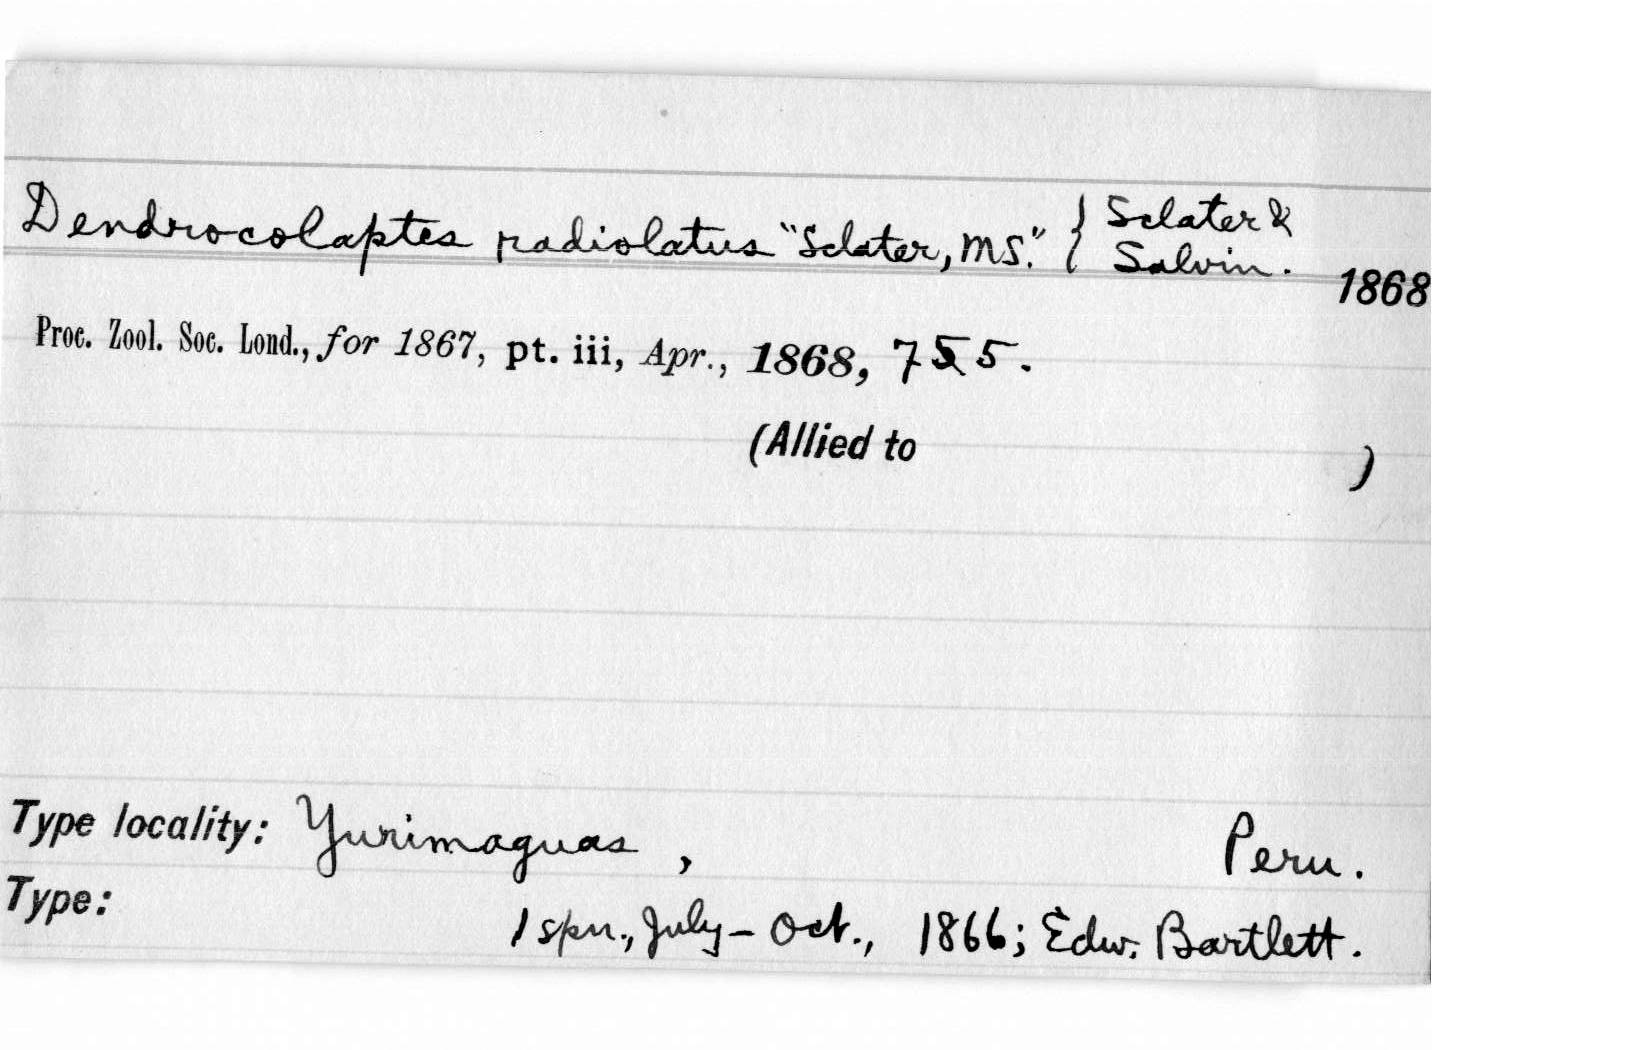 Dendrocolaptes radiolatus "Sclater, MS." { Sclater & Salvin. 1868
Proc. Zool. Soc. Lond., for 1867, pt. iii, Apr., 1868, 755.
(Allied to )
Type locality: Yurimaguas, Peru.
Type: 1 spn., July - Oct., 1866; Edw. Bartlett.